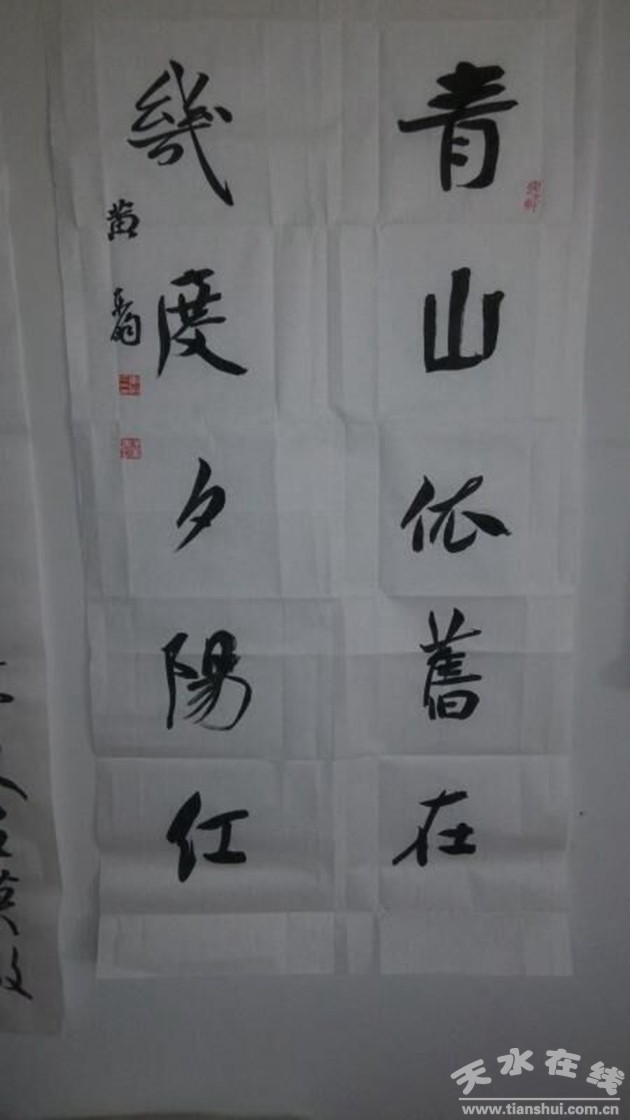 青山依舊在
幾度夕陽红
天水在线
www.tianshui.com.cn